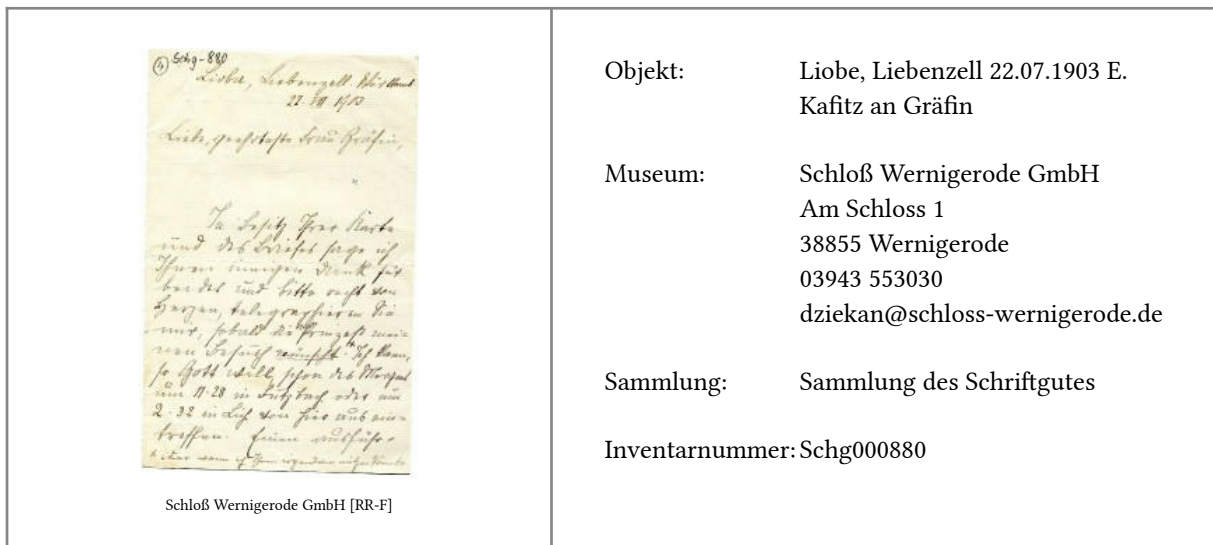 ④ Schg-880
Liobe, Liebenzell. Württbrd
22. VII 1903
Liebe, geehrteste Frau Gräfin,
In Besitz Ihrer Karte
und des Briefes sage ich
Ihnen innigen Dank für
beides und bitte recht von
Herzen, telegraphieren Sie
mir, sobald die Prinzeß mei-
nen Besuch wünscht. Ich kann,
so Gott will, schon des Morgens
um 11.28 in oder um
2.32 in Lich von hier aus ein-
treffen. Einen ausführ-
Schloß Wernigerode GmbH [RR-F]
Objekt: Liobe, Liebenzell 22.07.1903 E.
Kafitz an Gräfin
Museum: Schloß Wernigerode GmbH
Am Schloss 1
38855 Wernigerode
03943 553030
dziekan@schloss-wernigerode.de
Sammlung: Sammlung des Schriftgutes
Inventarnummer: Schg000880